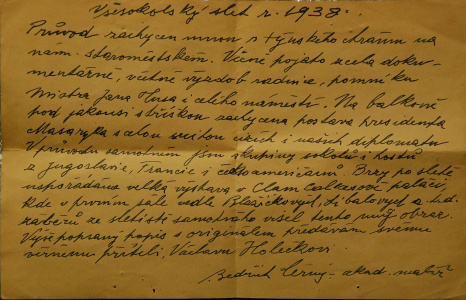 Všesokolský slet r. 1938.
Průvod zachycen mnou s týnského chrámu na
nám. staroměstském. Věcně pojato zcela doku-
mentárně, včetně výzdob radnice, pomníku
Mistra Jana Husa i celého náměstí. Na balkoně
pod jakousi stříškou zachycena postava presidenta
Masaryka s celou suitou cizích i našich diplomatů
V průvodu samotném jsou skupiny sokolů i hostů
z Jugoslavie, Francie, i českoameričanů. Brzy po sletě
uspořádána velká výstava v Clam Galasově paláci,
kde v prvním sále vedle Blažíčkových, a. t. d.
záběrů ze sletiště samotného visel tento můj obraz.
Výše popsaný popis s originálem předávám svému
věrnému příteli, Václavu Holečkovi.
Bedřich Černý - akad. malíř